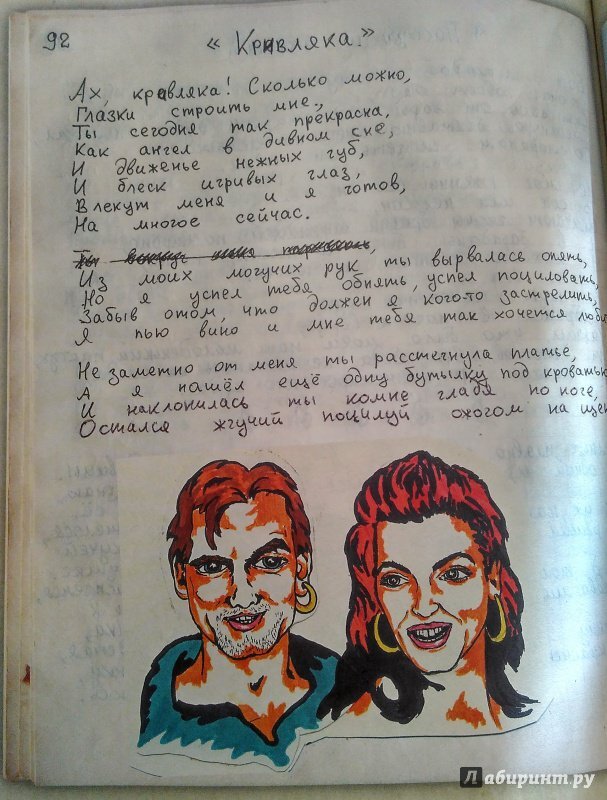 92
« Кривляка."
Ах, кривляка! Сколько можно,
Глазки строить мне.,
Ты сегодня так прекрасна,
Как ангел в дивном сне,
И движенье нежных губ,
И блеск игривых глаз,
Влекут меня и я готов,
На многое сейчас.
Из моих могучих рук ты вырвалась опять,
Но я успел тебя обнять, успел поциловать,
Забыв отом, что должен я кого-то застрелить,
Я пью вино и мне тебя так хочется люби
Не заметно от меня ты расстегнула платье,
А я нашёл ещё одну бутылку под кроватью
И наклонилась ты комне гладя по ноге,
Остался жгучий поцилуй ожогом на щек
Лабиринт.ру